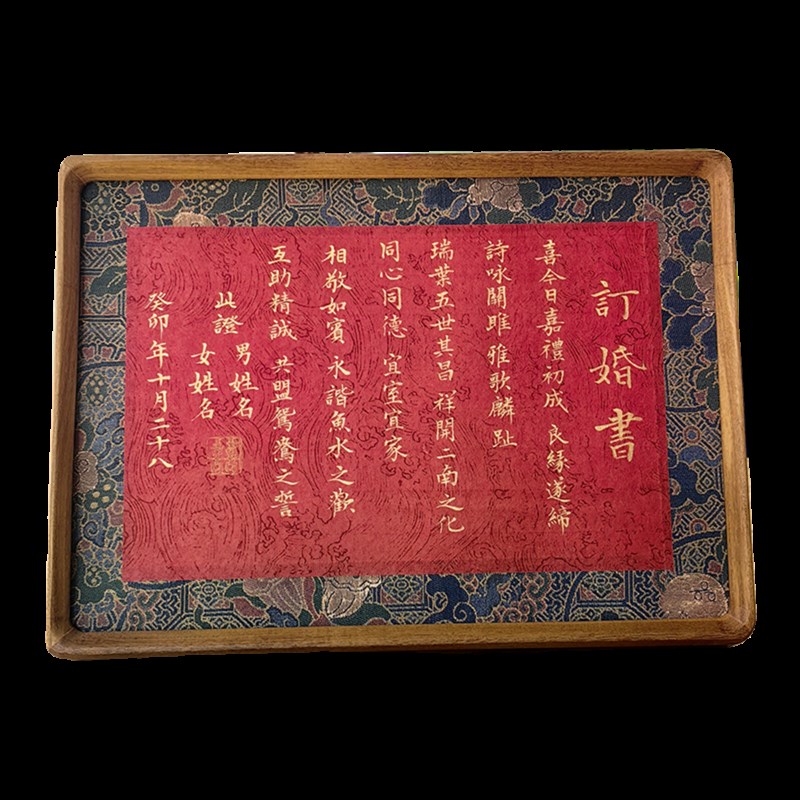 訂婚書
喜今日嘉禮初成 良緣遂締
詩咏關雎 雅歌麟趾
瑞葉五世其昌 祥開二南之化
同心同德 宜室宜家
相敬如賓 永諧魚水之歡
互助精誠 共盟鴛鴦之誓
此證
男姓名
女姓名
癸卯年十月二十八